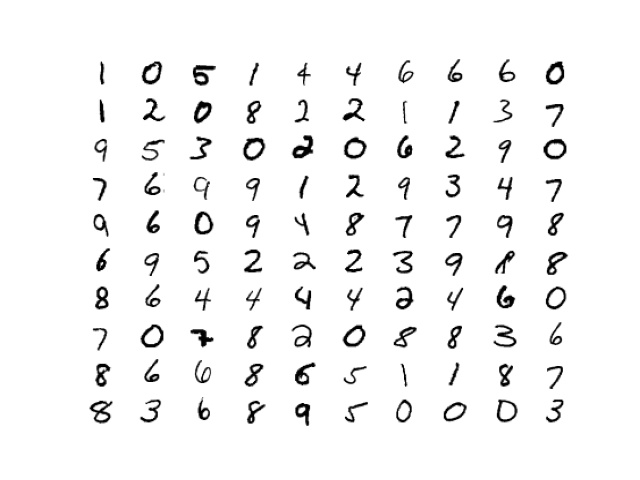 1 0 5 1 4 4 6 6 6 0
1 2 0 8 2 2 1 1 3 7
9 5 3 0 2 0 6 2 9 0
7 6 9 9 1 2 9 3 4 7
9 6 0 9 4 8 7 7 9 8
6 9 5 2 2 2 3 9 8 8
8 6 4 4 4 4 2 4 6 0
7 0 7 8 2 0 8 8 3 6
8 6 6 8 6 5 1 1 8 7
8 3 6 8 9 5 0 0 0 3